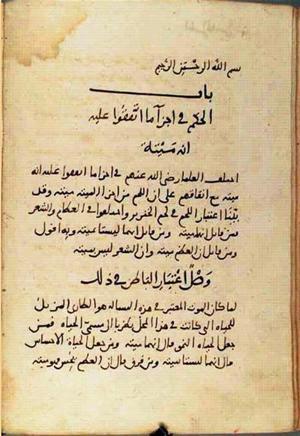 بسم الله الرحمن الرحيم
باب
الحكم في اجزآ ما اتفقوا عليه
انه ميتة
اختلف العلما رضي الله عنهم في اجزا ما اتفقوا عليه انه
ميتة مع اتفاقهم على ان اللحم من اجزا الميتة ميتة وقد
بينا اعتبار اللحم في لحم الخنزير واختلفوا في العظام والشعر
فمن قايل انها ميتة ومن قايل انهما ليستا ميتة وبه اقول
ومن قايل ان العظم ميتة وان الشعر ليس بميتة
وصل اعتبار الناظر في ذلك
لما كان الموت المعتبر في هذه المسالة هو الطاري المزيل
للحياة التي كانت في هذا المحل نظرنا في مسمى الحياة فمن
جعل الحياة النمو قال انهما ميتة ومن جعل الحياة الاحساس
قال انهما ليستا ميتة ومن فرق قال ان العظم يحس فهو ميتة